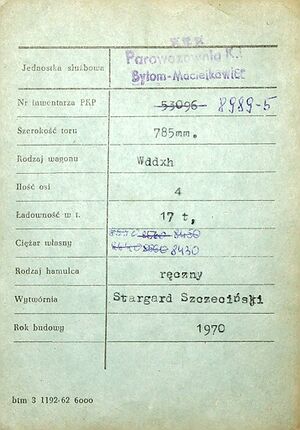 Jednostka służbowa Parowozownia K.
Bytom-Maciejkowice
Nr inwentarza PKP 53096 8989-5
Szerokość toru 785mm.
Rodzaj wagonu Wddxh
Ilość osi 4
Ładowność w t. 17 t,
Ciężar własny 8450
8430
Rodzaj hamulca ręczny
Wytwórnia Stargard Szczeciński
Rok budowy 1970
btm 3 1192-62 6000